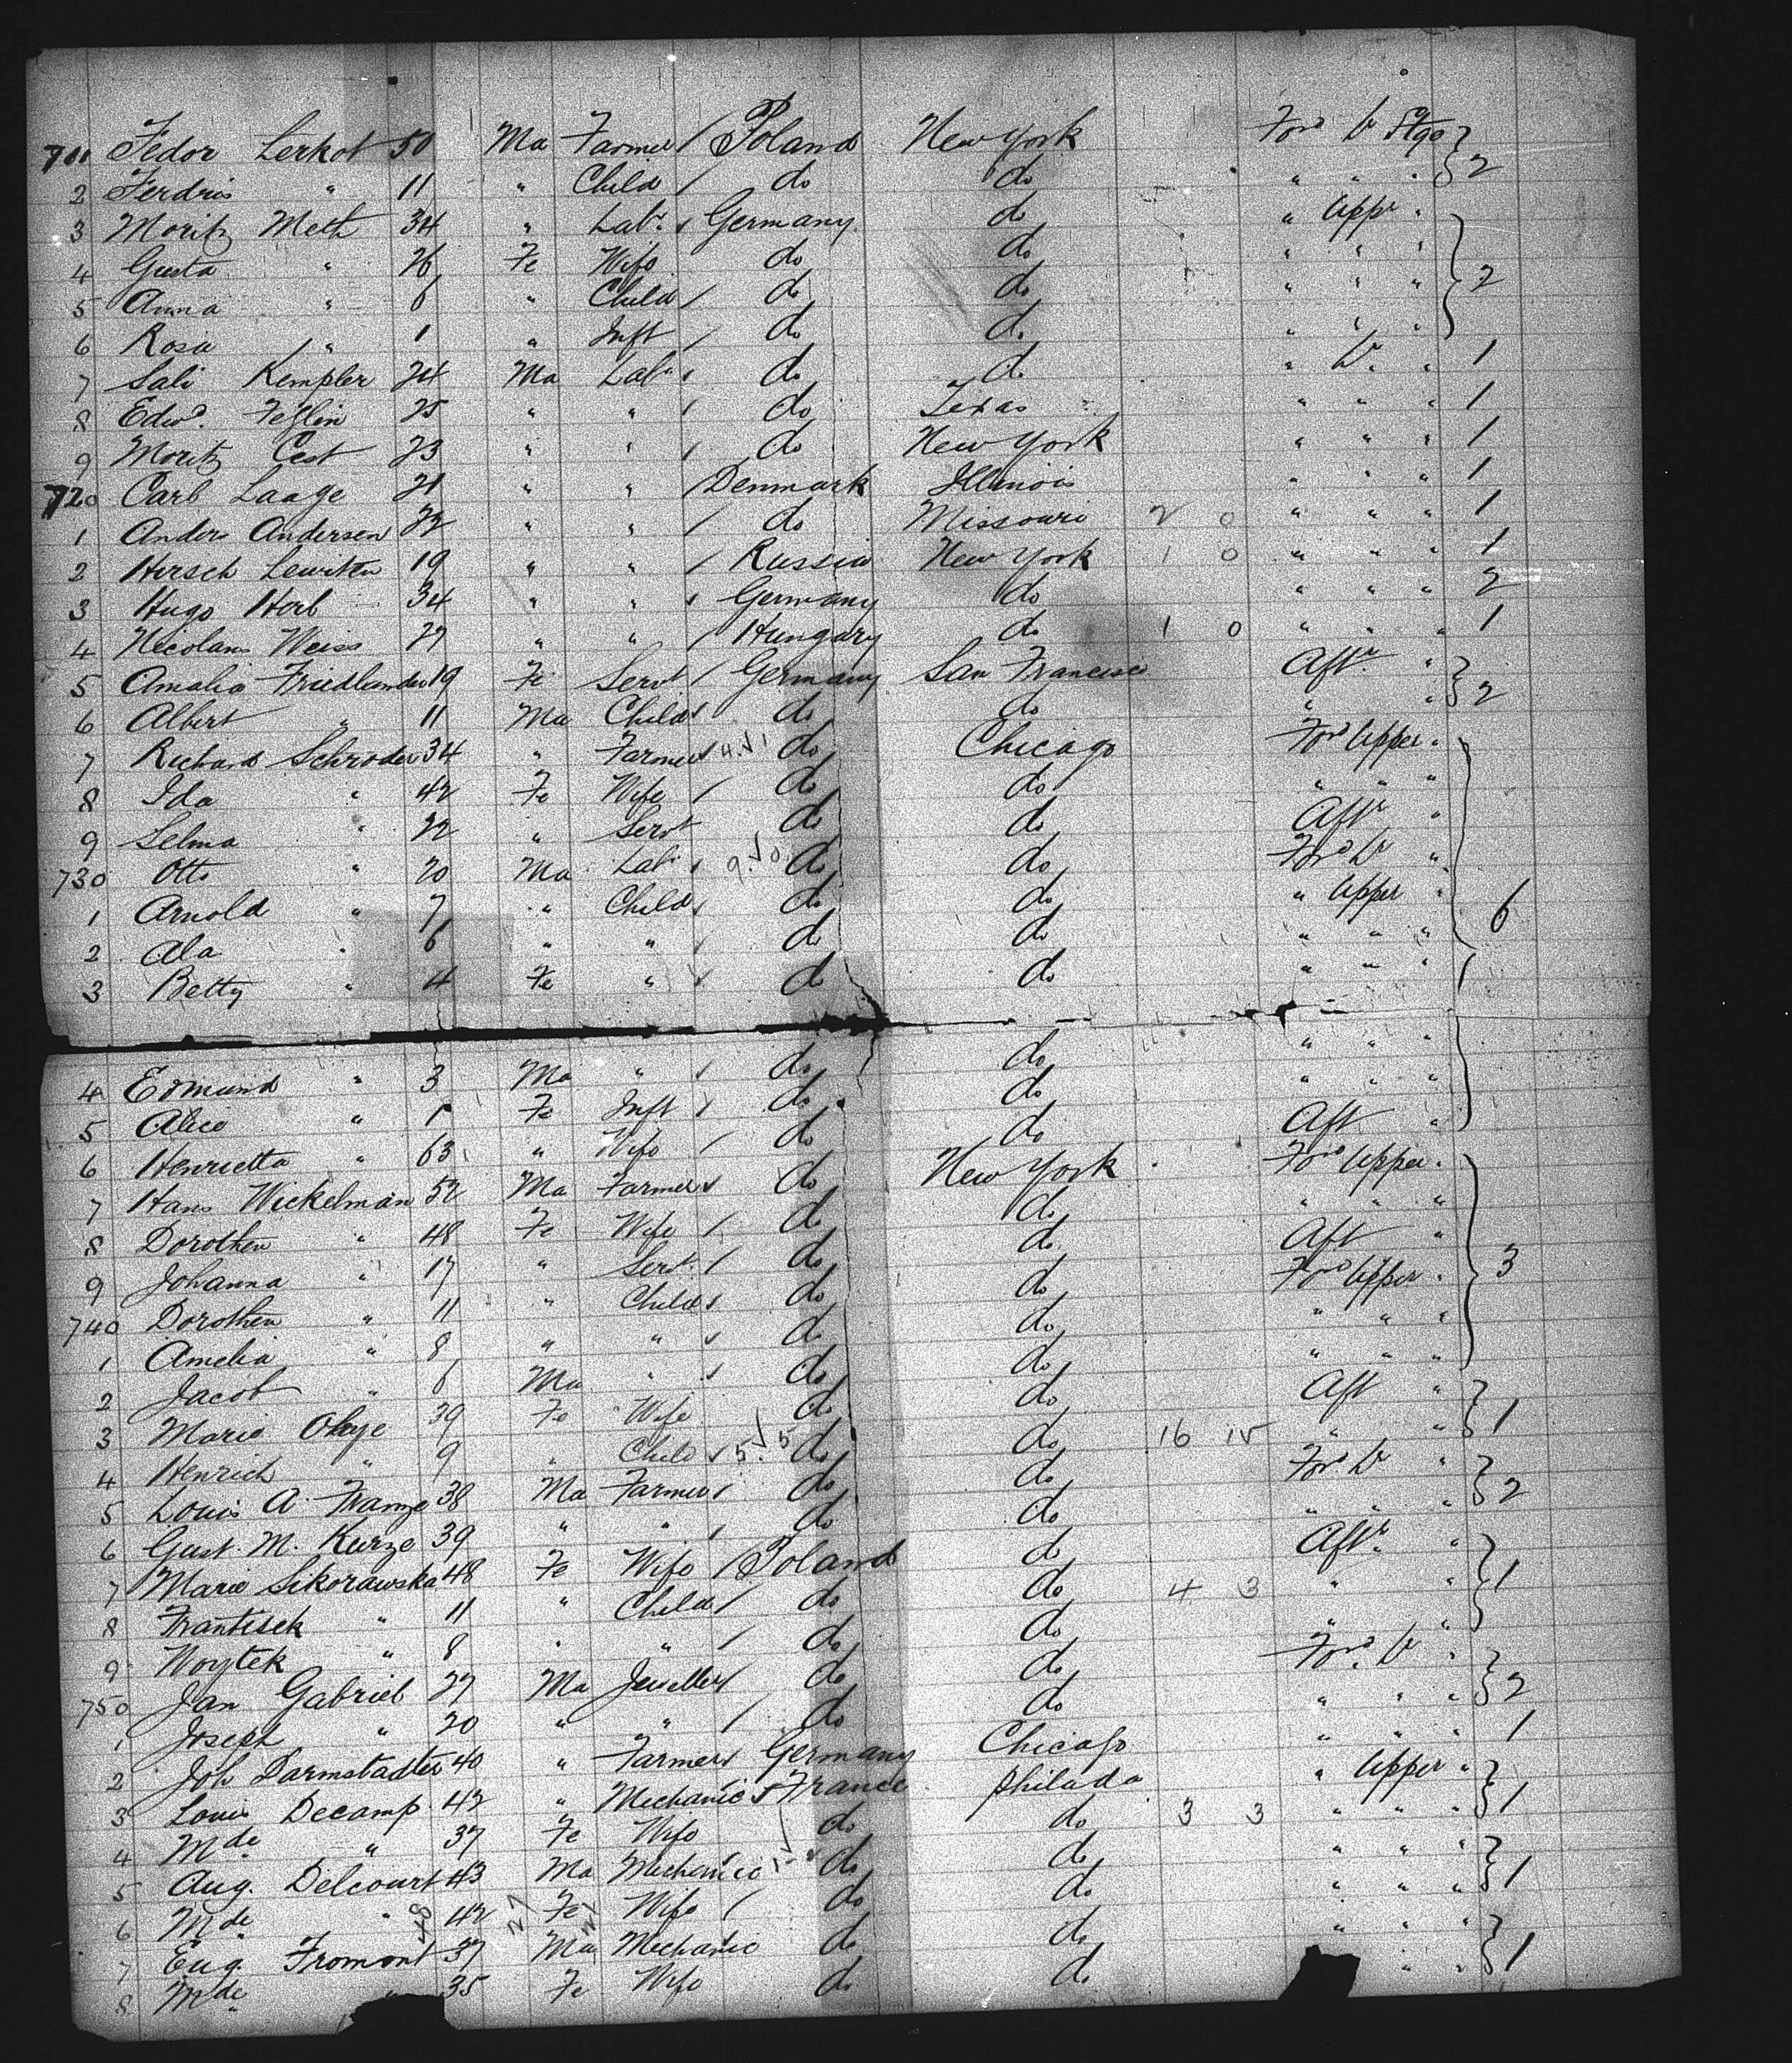 711 Fedor Lerkot 50 Ma Farmer / Poland New York For'd Lr Stge } 2
2 Ferdris " 11 " Child / do do " " "
3 Moritz Meth 34 " Labr Germany do " Uppr "
4 Gusta " 26 Fe Wife do do " " " } 2
5 Anna " 6 " Child / do do " " "
6 Rosa " 1 " Inft / do do " " "
7 Sali Kempler 24 Ma Labr do do " Lr " 1
8 Edwd. 25 " " / do Texas " " " 1
9 Moritz Cest 23 " " / do New York " " " 1
720 Carl Laage 21 " " / Denmark Illinois " " " 1
1 Anders Andersen 22 " " / do Missouri 2 0 " " " 1
2 Hirsch 19 " " / Russia New York 1 0 " " " 1
3 Hugo Horb 34 " " Germany do " " " 2
4 Nicolaus Weiss 27 " " / Hungary do 1 0 " " " 1
5 Amalia Friedlander 19 Fe Servt / Germany San Francisco Aftr "
6 Albert " 11 Ma Child do do " " } 2
7 Richard Schroder 34 " Farmer 4.√1 do Chicago For'd Upper "
8 Ida " 42 Fe Wife / do do " " "
9 Selma " 22 " Servt do do Aftr "
730 Otto " 20 Ma Labr 9.√0 do do For'd Lr "
1 Arnold " 7 " Child do do " Upper " 6
2 Ala " 6 " " / do do " " "
3 Betty " 4 Fe " do do " " "
4 Edmund " 3 Ma " do do " " "
5 Alice " 1 Fe Inft do do " " "
6 Henrietta " 63 " Wife / do do Aft "
7 Hans Wickelman 52 Ma Farmer do New York For'd Upper "
8 Dorothea " 48 Fe Wife / do do " " "
9 Johanna " 17 " Servt / do do Aft " 3
740 Dorothea " 11 " Child do do For'd Upper "
1 Amelia " 8 " " do do " " "
2 Jacob " 6 Ma " do do " " "
3 Marie 39 Fe Wife do do Aft "
4 Henrich " 9 " Child 5.√5 do do 16 15 " " } 1
5 Louis A. Franze 38 Ma Farmer / do do For'd Lr "
6 Gust. M. Kurze 39 " " / do do " " " } 2
7 Marie Sikorawska 48 Fe Wife / Poland do Aftr "
8 Frantisek " 11 " Child / do do 4 3 " " } 1
9 Woytek " 8 " " / do do " "
750 Jan Gabriel 27 Ma Jeweller / do do For'd Lr "
1 Joseph " 20 " " / do do " " " } 2
2 Joh Darmstadter 40 " Farmer Germany Chicago " " " 1
3 Louis Decamp 42 " Mechanic France Philada " Upper "
4 Mde " 37 Fe Wife do do 3 3 " " " } 1
5 Aug. Delcourt 43 Ma Mechanic do do " " "
6 Mde " 42 Fe Wife / do do " " " } 1
7 Eug. Fromont 37 Ma Mechanic do do " " "
8 Mde " 35 Fe Wife do do " " } 1